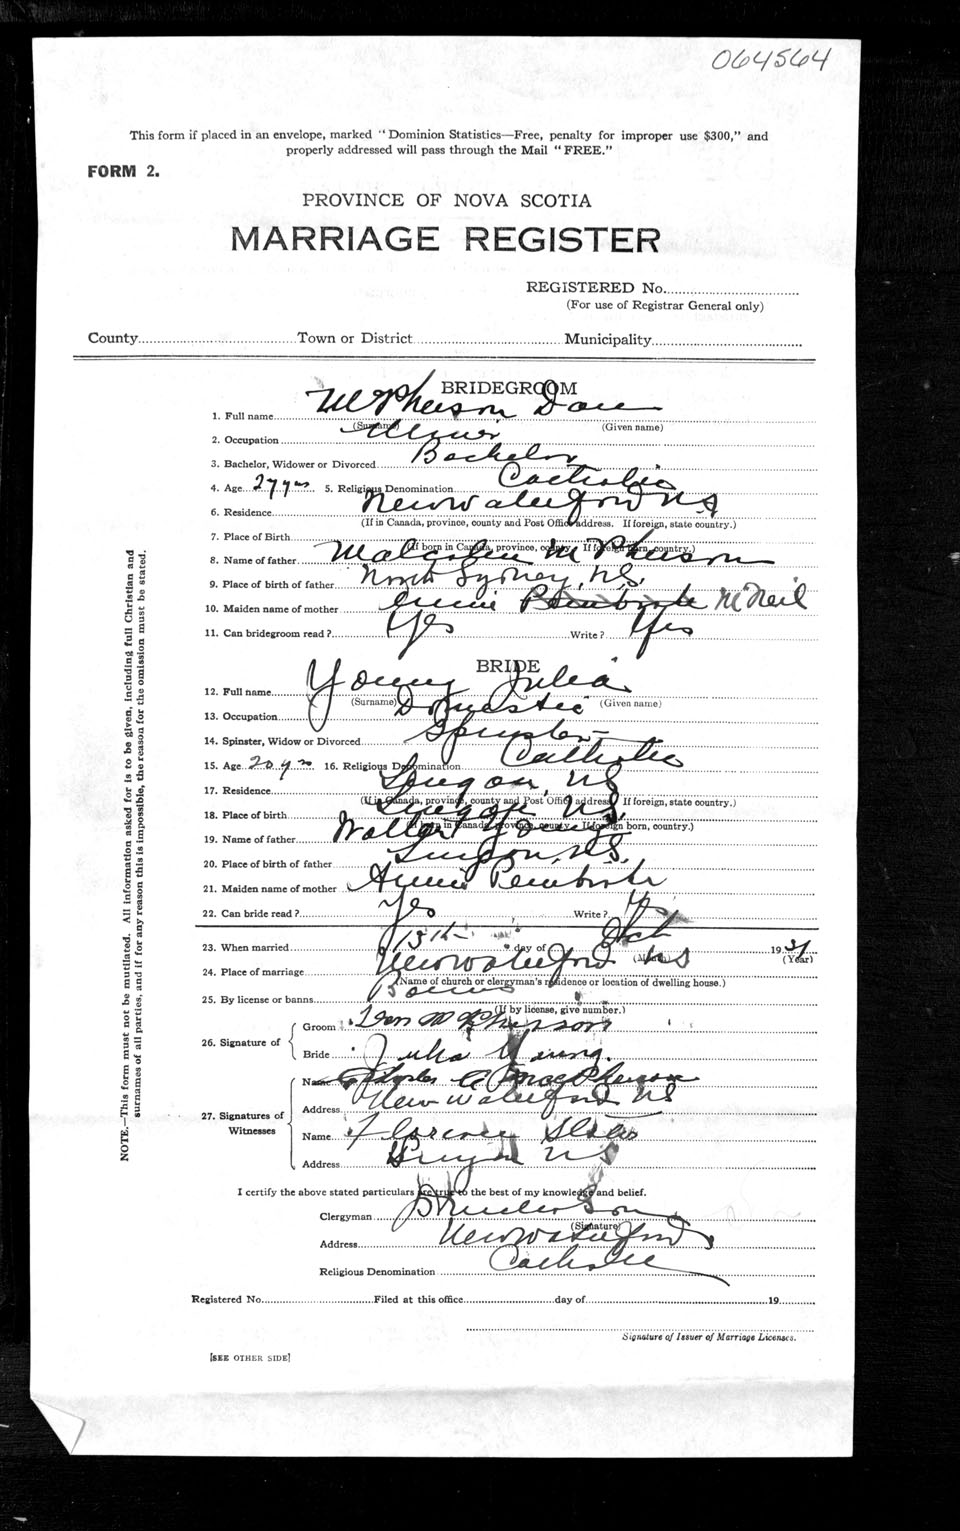 064564
This form if placed in an envelope, marked "Dominion Statistics—Free, penalty for improper use $300," and
properly addressed will pass through the Mail "FREE."
FORM 2.
PROVINCE OF NOVA SCOTIA
MARRIAGE REGISTER
REGISTERED No.
(For use of Registrar General only)
County Town or District Municipality
BRIDEGROOM
1. Full name McPherson Dan
(Surname) (Given name)
2. Occupation Miner
3. Bachelor, Widower or Divorced Bachelor
4. Age 27 yrs 5. Religious Denomination Catholic
6. Residence New Waterford N S
(If in Canada, province, county and Post Office address. If foreign, state country.)
7. Place of Birth
(If born in Canada, province, county. If foreign born, country.)
8. Name of father Malcolm McPherson
9. Place of birth of father North Sydney, N.S.
10. Maiden name of mother Annie Pembroke McNeil
11. Can bridegroom read? Yes Write? Yes
BRIDE
12. Full name Young Julia
(Surname) (Given name)
13. Occupation Domestic
14. Spinster, Widow or Divorced Spinster
15. Age 20 yrs 16. Religious Denomination Catholic
17. Residence Lingan, N S
(If in Canada, province, county and Post Office address. If foreign, state country.)
18. Place of birth Lingan N.S.
(If born in Canada, province, county. If foreign born, country.)
19. Name of father Walter Young
20. Place of birth of father Lingan, N.S.
21. Maiden name of mother Annie Pembroke
22. Can bride read? Yes Write? Yes
23. When married 13th day of Oct 1931
(Month) (Year)
24. Place of marriage New Waterford N S
(Name of church or clergyman's residence or location of dwelling house.)
25. By license or banns Banns
(If by license, give number.)
26. Signature of
Groom Dan McPherson
Bride Julia Young.
27. Signatures of Witnesses
Name MacPherson
Address New Waterford N S
Name Florence
Address Lingan N S
I certify the above stated particulars are true to the best of my knowledge and belief.
Clergyman
(Signature)
Address New Waterford
Religious Denomination Catholic
Registered No. Filed at this office day of 19
Signature of Issuer of Marriage Licenses.
[SEE OTHER SIDE]
NOTE.—This form must not be mutilated. All information asked for is to be given, including full Christian and
surnames of all parties, and if for any reason this is impossible, the reason for the omission must be stated.